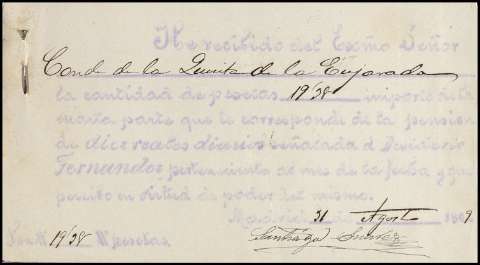 He recibido del Excmo Señor
Conde de la Quinta de la Enjarada
la cantidad de pesetas 19'38 importe de la
cuarta parte que le corresponde de la pension
de diez reales diarios señalada a
Fernandez perteneciente al mes de la fecha y que
percibo en virtud de poder del mismo.
Madrid 31 de Agosto 1889.
Son 19'38 pesetas.
Santiago Suarez